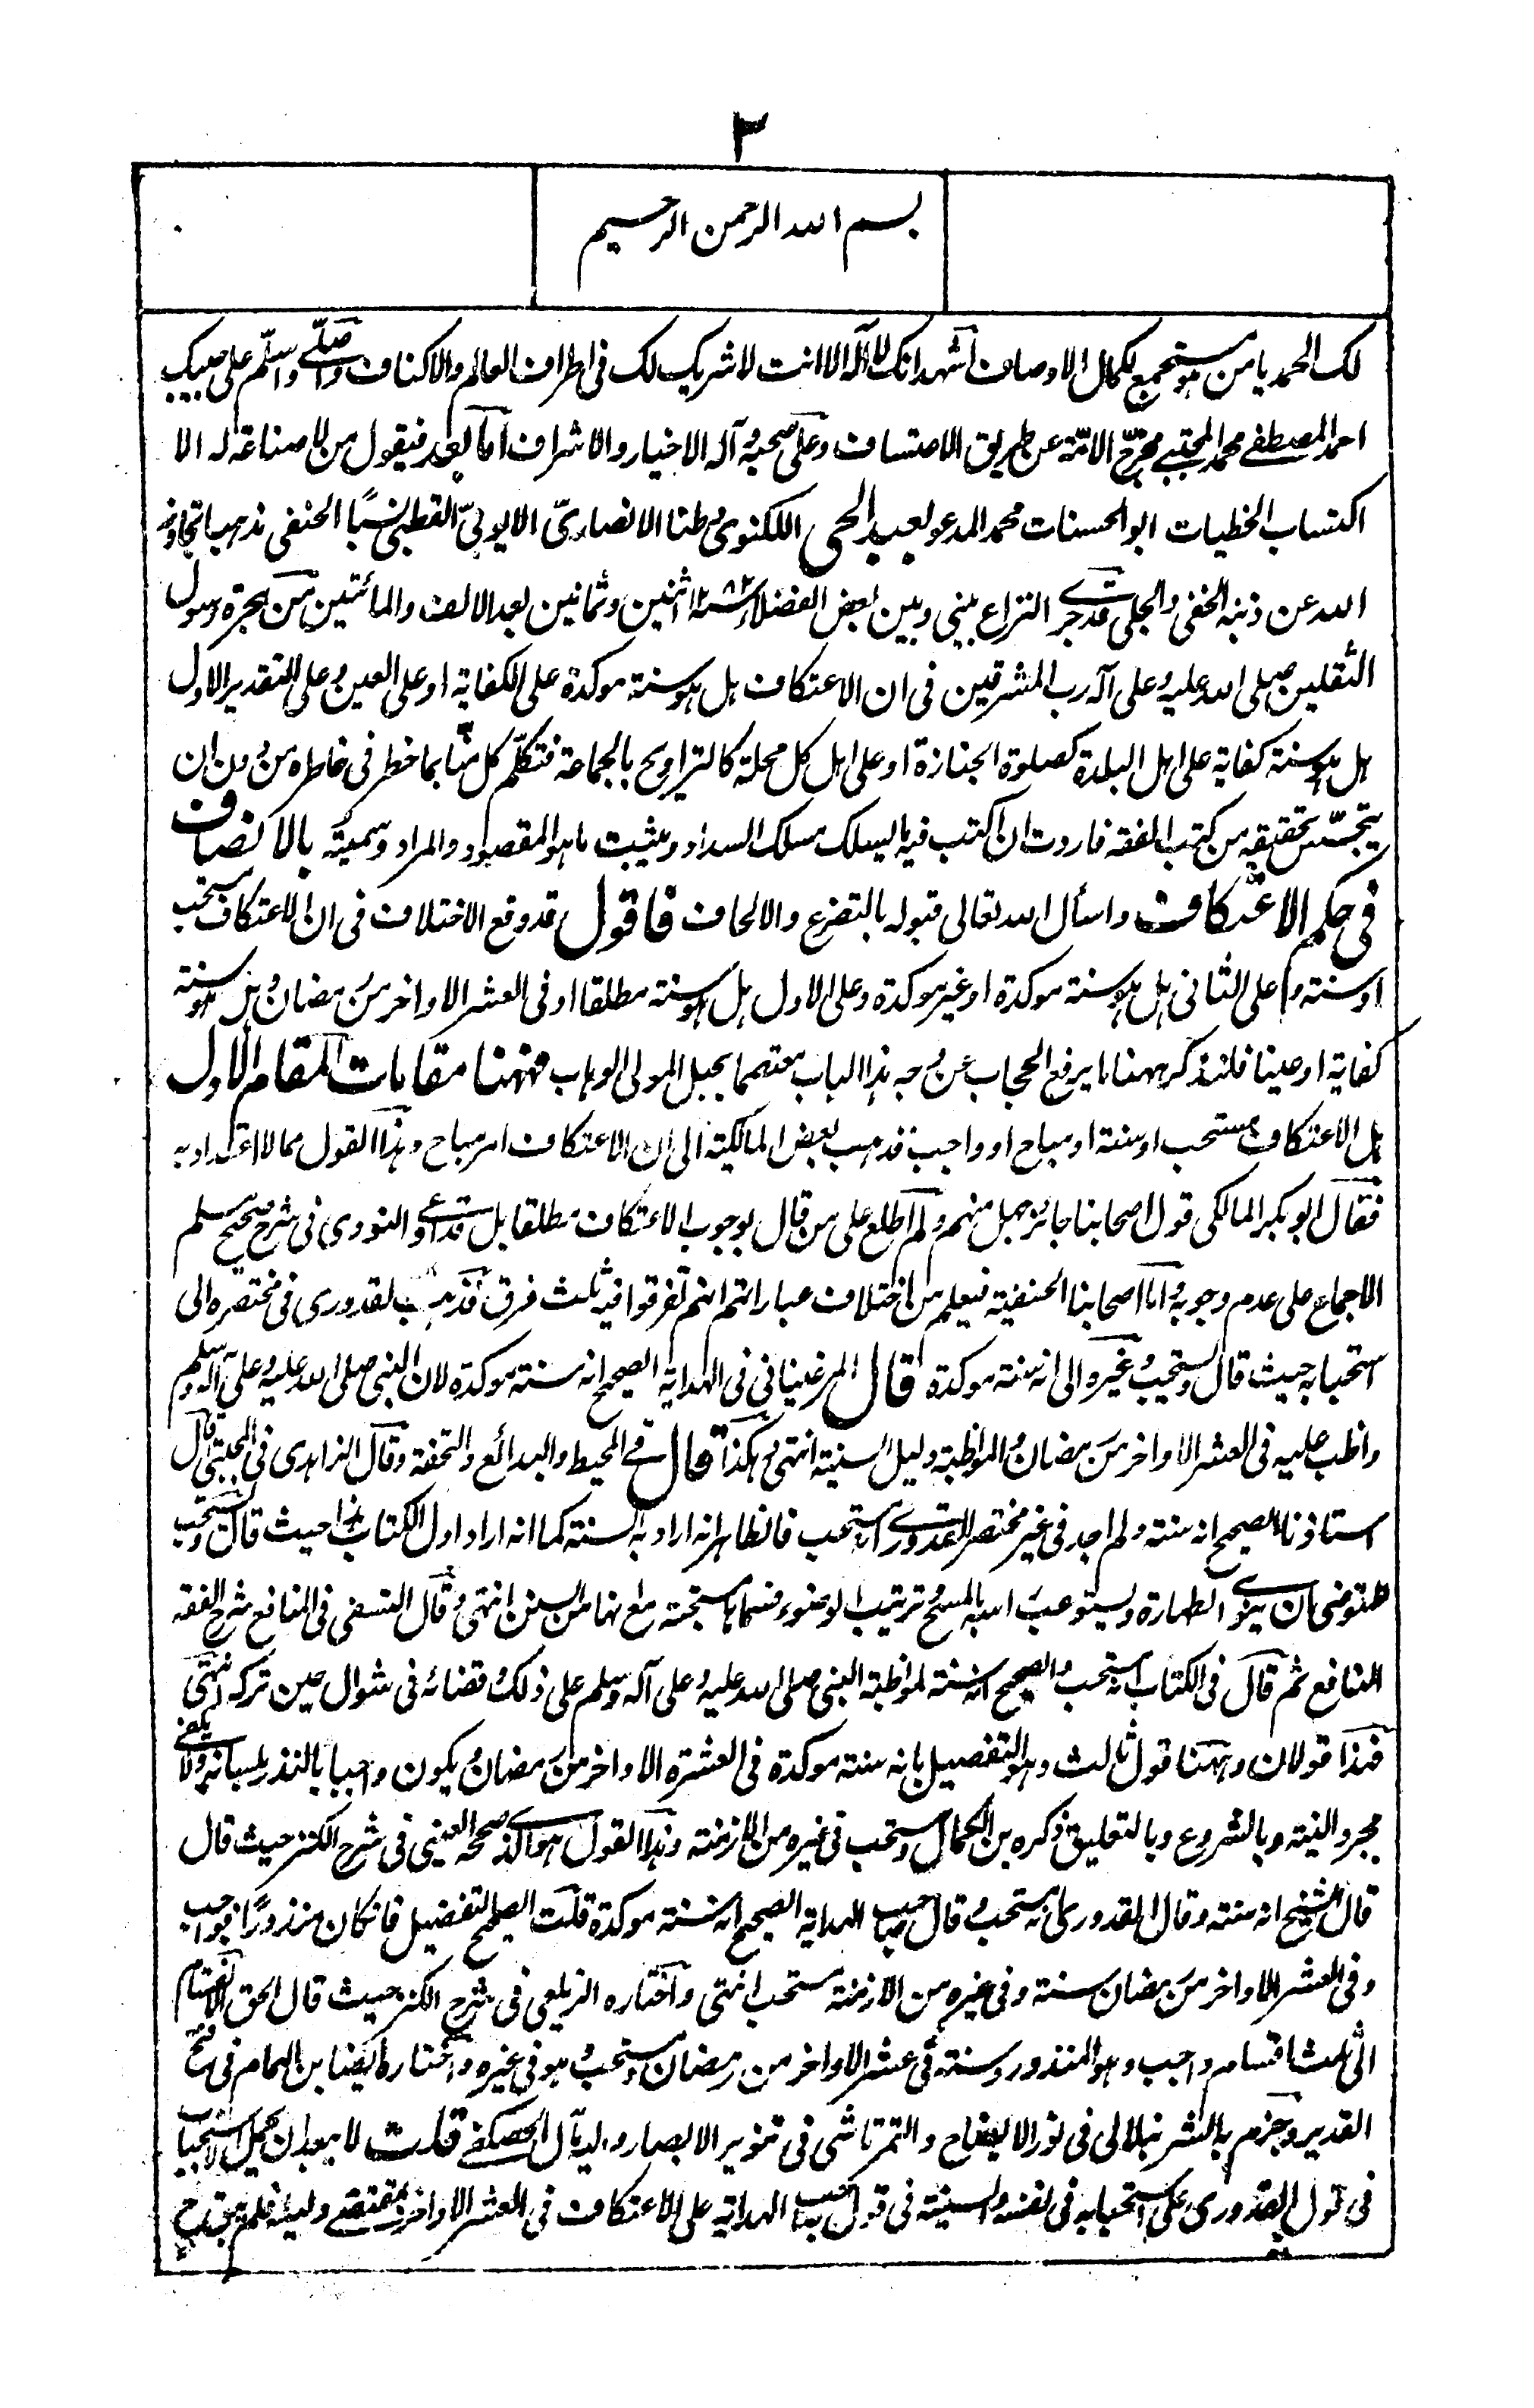 ٣
بسم الله الرحمن الرحيم
لك الحمد يا من هو مستجمع لكمال الاوصاف اشهد انك لا اله الا انت لا شريك لك فى اطراف العالم والاكناف واصلّى واسلّم على حبيبك
احمد المصطفى محمد المجتبى مخرج الامّة عن طريق الاعتساف وعلى صحبه وآله الاخيار والاشراف اما بعد فيقول من لا صناعة له الا
اكتساب الخطيات ابو الحسنات محمد المدعو بعبد الحى اللكنوى وطنا الانصارىّ الايوبىّ القطبى نسبًا الحنفى مذهبا تجاوز
الله عن ذنبه الخفى والجلى قد جرى النزاع بينى وبين بعض الفضلاء سنة ١٢٨٢ اثنين وثمانين بعد الالف والمائتين من هجرة رسول
الثقلين صلى الله عليه وعلى آله رب المشرقين فى ان الاعتكاف هل هو سنة موكدة على الكفاية او على العين وعلى التقدير الاول
هل هو سنة كفاية على اهل البلدة كصلوة الجنازة او على اهل كل محلة كالتراويح بالجماعة فتكلّم كل منّا بما خطر فى خاطره من دون ان
يتجسّس تحقيقه من كتب الفقه فاردت ان اكتب فيه ما يسلك مسلك السداد ويثبت ما هو المقصود والمراد وسميته بالانصاف
فى حكم الاعتكاف واسأل الله تعالى قبوله بالتضرع والالحاف فاقول قد وقع الاختلاف فى ان الاعتكاف مستحب
او سنة وعلى الثانى هل هو سنة موكدة او غير موكدة وعلى الاول هل هو سنة مطلقا او فى العشر الاواخر من رمضان وهل هو سنة
كفاية او عينا فلنذكر ههنا ما يرفع الحجاب عن وجه هذا الباب معتصما بحبل المولى الوهاب فههنا مقامات المقام الاول
هل الاعتكاف مستحب او سنة او مباح او واجب فذهب بعض المالكية الى ان الاعتكاف امر مباح وهذا القول مما لا اعتداد به
فقال ابو بكر المالكى قول اصحابنا جائز جهل منهم ولم اطلع على من قال بوجوب الاعتكاف مطلقا بل قد ادعى النووى فى شرح صحيح مسلم
الاجماع على عدم وجوبه واما اصحابنا الحنفية فيعلم من اختلاف عباراتهم انهم تفرقوا فيه ثلث فرق فذهب القدورى فى مختصره الى
استحبابه حيث قال ويستحب وغيره الى انه سنة موكدة قال المرغينانى فى الهداية الصحيح انه سنة موكدة لان النبى صلى الله عليه وعلى آله وسلم
واظب عليه فى العشر الاواخر من رمضان والمواظبة دليل السنية انتهى وهكذا قال فى المحيط والبدائع والتحفة وقال الزاهدى فى المجتبى قال
استاذنا الصحيح انه سنة ولم اجد فى غير مختصر القدورى انه مستحب فالظاهر انه اراد به السنة كما انه اراد اول الكتاب هذا حيث قال ويستحب
للمتوضى ان ينوى الطهارة ويستوعب راسه بالمسح وترتيب الوضوء فسماها مستحبة مع انها من السنن انتهى وقال النسفى فى المنافع شرح الفقه
النافع ثم قال فى الكتاب انه مستحب والصحيح انه سنة لمواظبة النبى صلى الله عليه وعلى آله وسلم على ذلك وقضائه فى شوال حين تركه انتهى
فهذا قولان وههنا قول ثالث وهو التفصيل بانه سنة موكدة فى العشرة الاواخر من رمضان ويكون واجبا بالنذر بلسانه ولا يكفى
مجرد النية وبالشروع وبالتعليق ذكره بن الكمال ومستحب فى غيره من الازمنة وهذا القول هو الذى صححه العينى فى شرح الكنز حيث قال
قال الشيخ انه سنة وقال القدورى انه مستحب وقال صاحب الهداية الصحيح انه سنة موكدة قلت الصحيح التفصيل فان كان منذورًا فواجب
وفى العشر الاواخر من رمضان سنة وفى غيره من الازمنة مستحب انتهى واختاره الزيلعى فى شرح الكنز حيث قال الحق الانقسام
الى ثلث اقسام واجب وهو المنذور وسنة فى عشر الاواخر من رمضان ومستحب وهو فى غيره واختاره ايضا ابن الهمام فى فتح
القدير وجزم به الشرنبلالى فى نور الايضاح والتمرتاشى فى تنوير الابصار واليه مال الحصكفى قلت لا يبعد ان يحمل الاستحباب
فى قول القدورى على استحبابه فى نفسه والسنية فى قول صاحب الهداية على الاعتكاف فى العشر الاواخر